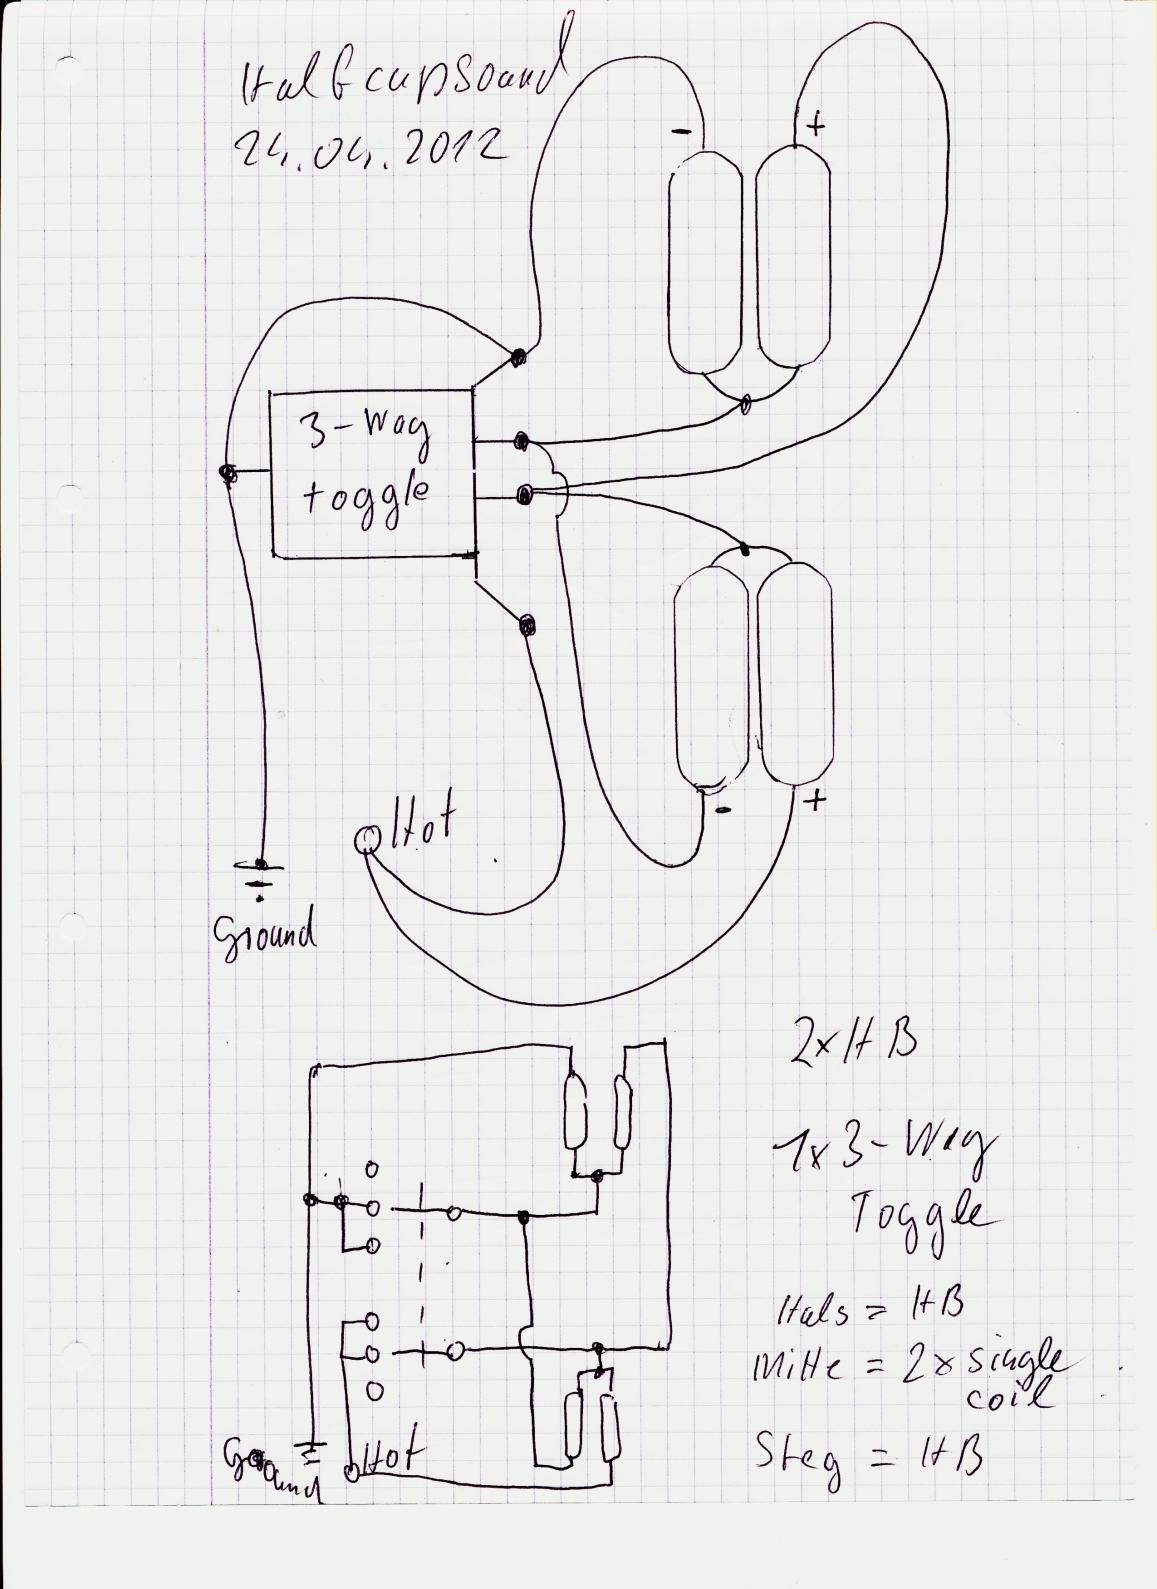 Half cup Sound
24.04.2012
-
+
3-Way
toggle
-
+
Hot
Ground
2x HB
1x 3-Way
Toggle
Hals = HB
Mitte = 2x single
coil
Steg = HB
Hot
Ground